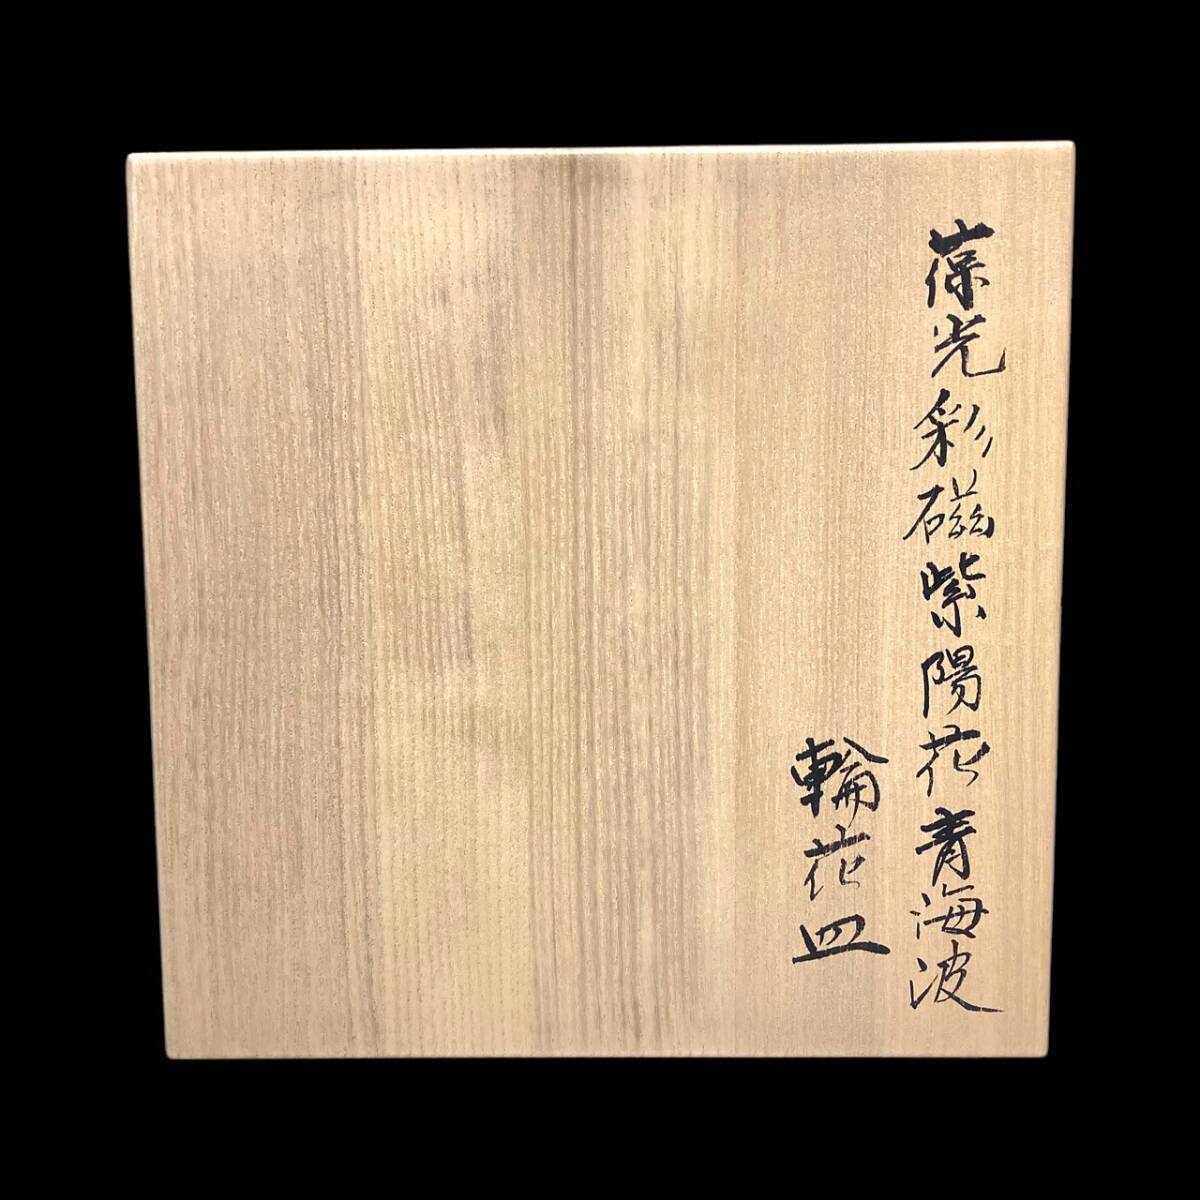 葆光彩磁紫陽花青海波
輪花皿